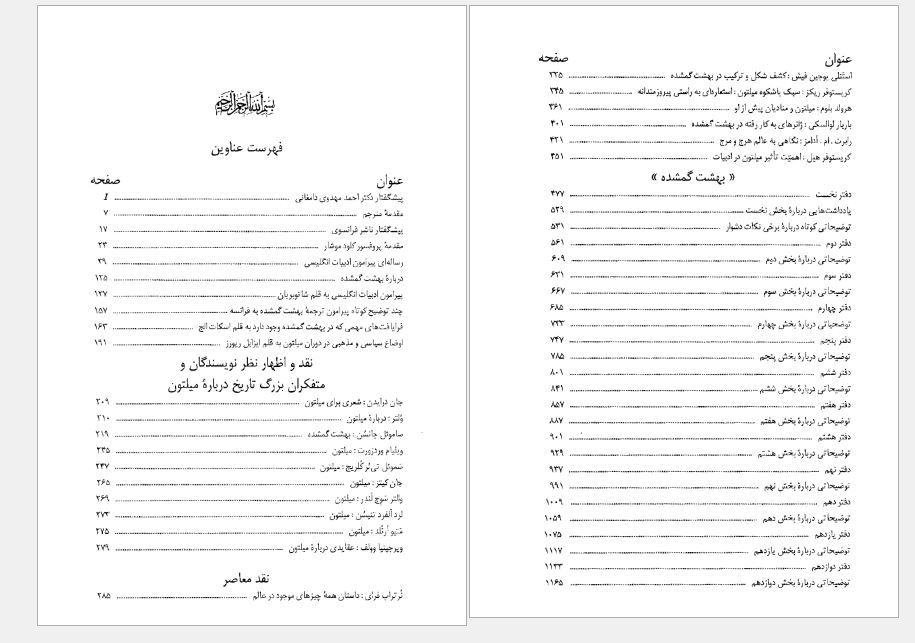 بسم الله الرحمن الرحیم
فهرست عناوین
عنوان صفحه
پیشگفتار دکتر احمد مهدوی دامغانی I
مقدمهٔ مترجم ۷
پیشگفتار ناشر فرانسوی ۱۷
مقدمهٔ پروفسور کلود موشار ۲۳
رساله‌ای پیرامون ادبیات انگلیسی ۳۹
دربارهٔ بهشت گمشده ۱۲۵
پیرامون ادبیات انگلیسی به قلم شاتوبریان ۱۲۷
چند توضیح کوتاه پیرامون ترجمهٔ بهشت گمشده به فرانسه ۱۵۷
فرایافت‌های مهمی که در بهشت گمشده وجود دارد به قلم اسکات الج ۱۶۳
اوضاع سیاسی و مذهبی در دوران میلتون به قلم ایزابل ریورز ۱۹۱
نقد و اظهار نظر نویسندگان و
متفکران بزرگ تاریخ دربارهٔ میلتون
جان درایدن : شعری برای میلتون ۲۰۹
ولتر : دربارهٔ میلتون ۲۱۰
ساموئل جانسُن : بهشت گمشده ۲۱۹
ویلیام وردزورت : میلتون ۲۳۵
سَموئل تی‌لُر کُلریج : میلتون ۲۴۷
جان کیتز : میلتون ۲۶۵
والتر سَوِج لَندِر : میلتون ۲۶۹
لرد آلفرد تنیسُن : میلتون ۲۷۳
مَتیو اَرنُلد : میلتون ۲۷۵
ویرجینیا وولف : عقایدی دربارهٔ میلتون ۲۷۹
نقد معاصر
نُرتراپ فرای : داستان همهٔ چیزهای موجود در عالم ۲۸۵
عنوان صفحه
استنلی یوجین فیش : کشف شکل و ترکیب در بهشت گمشده ۳۳۵
کریستوفر ریکز : سبک باشکوه میلتون : استعاره‌ای به راستی پیروزمندانه ۳۴۵
هرولد بلوم : میلتون و منادیان پیش از او ۳۶۱
باربارا لوالسکی : ژانرهای به کار رفته در بهشت گمشده ۴۰۱
رابرت . ام . آدامز : نگاهی به عالم هرج و مرج ۴۲۱
کریستوفر هیل : اهمیّت تأثیر میلتون در ادبیات ۴۵۱
« بهشت گمشده »
دفتر نخست ۴۷۷
یادداشت‌هایی دربارهٔ بخش نخست ۵۲۹
توضیحاتی کوتاه دربارهٔ برخی نکات دشوار ۵۳۱
دفتر دوم ۵۶۱
توضیحاتی دربارهٔ بخش دوم ۶۰۹
دفتر سوم ۶۳۱
توضیحاتی دربارهٔ بخش سوم ۶۶۷
دفتر چهارم ۶۸۵
توضیحاتی دربارهٔ بخش چهارم ۷۳۳
دفتر پنجم ۷۴۷
توضیحاتی دربارهٔ بخش پنجم ۷۸۵
دفتر ششم ۸۰۱
توضیحاتی دربارهٔ بخش ششم ۸۴۱
دفتر هفتم ۸۵۷
توضیحاتی دربارهٔ بخش هفتم ۸۸۷
دفتر هشتم ۹۰۱
توضیحاتی دربارهٔ بخش هشتم ۹۲۹
دفتر نهم ۹۳۷
توضیحاتی دربارهٔ بخش نهم ۹۹۱
دفتر دهم ۱۰۰۹
توضیحاتی دربارهٔ بخش دهم ۱۰۵۹
دفتر یازدهم ۱۰۷۵
توضیحاتی دربارهٔ بخش یازدهم ۱۱۱۷
دفتر دوازدهم ۱۱۳۳
توضیحاتی دربارهٔ بخش دوازدهم ۱۱۶۵